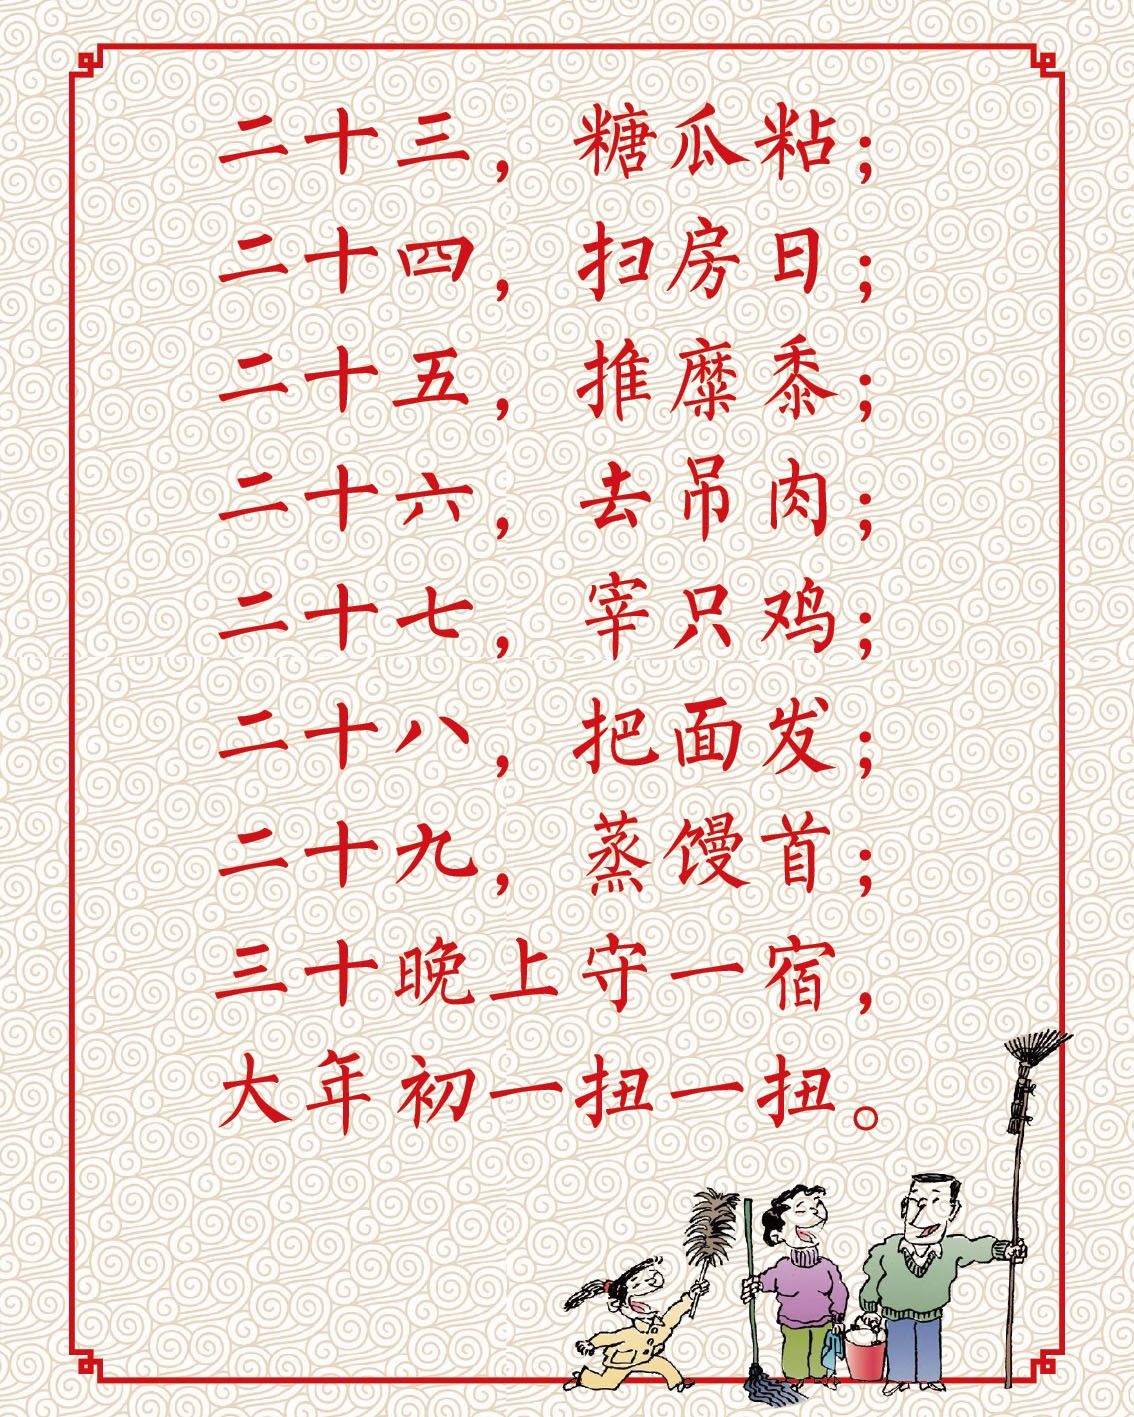 二十三，糖瓜粘；
二十四，扫房日；
二十五，推糜黍；
二十六，去吊肉；
二十七，宰只鸡；
二十八，把面发；
二十九，蒸馒首；
三十晚上守一宿，
大年初一扭一扭。